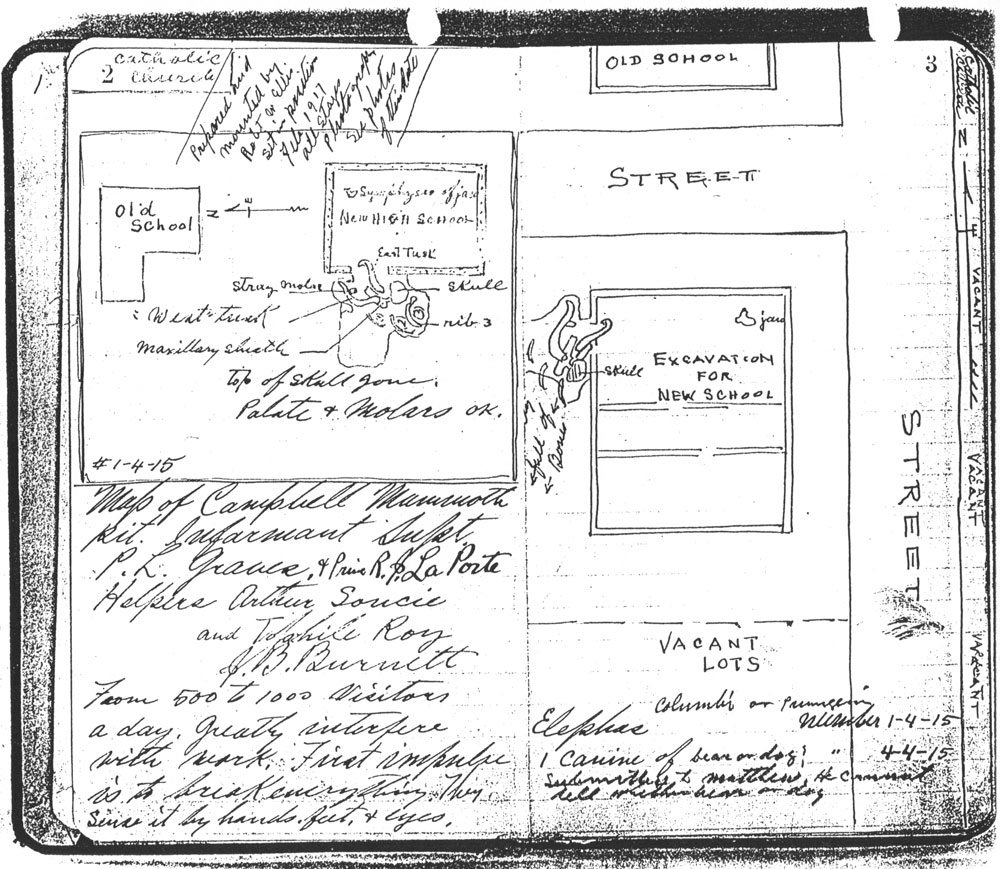 2
Catholic
Church
Prepared and
mounted by
set in position
Feb. 1917
all steps
photographs
See photos
of this date
Old
School
N
E
Symphyses of jaw
New High School
East Tusk
Stray Molar
Skull
"West" tusk
rib 3
Maxillary sheath
top of skull gone.
Palate & Molars ok.
#1-4-15
Map of Campbell Mammoth
pit. Informant Supt.
P. L. Graves, & Prin R. P. La Porte
Helpers Arthur Soucie
and Tophile Roy
J. B. Burnett
From 500 to 1000 Visitors
a day. Greatly interfere
with work. First impulse
is to break everything. They
Sense it by hands, feet, & eyes.
3
Old School
Street
jaw
Skull
Excavation
for
New School
full of
Bones
Street
Vacant
Lots
Catholic
Church
N
E
Vacant
Vacant
Vacant
Vacant
Columbi or
Elephas Number 1-4-15
1 Canine of bear or dog; " 4-4-15
Submitted to Matthew, He cannot
tell whether bear or dog